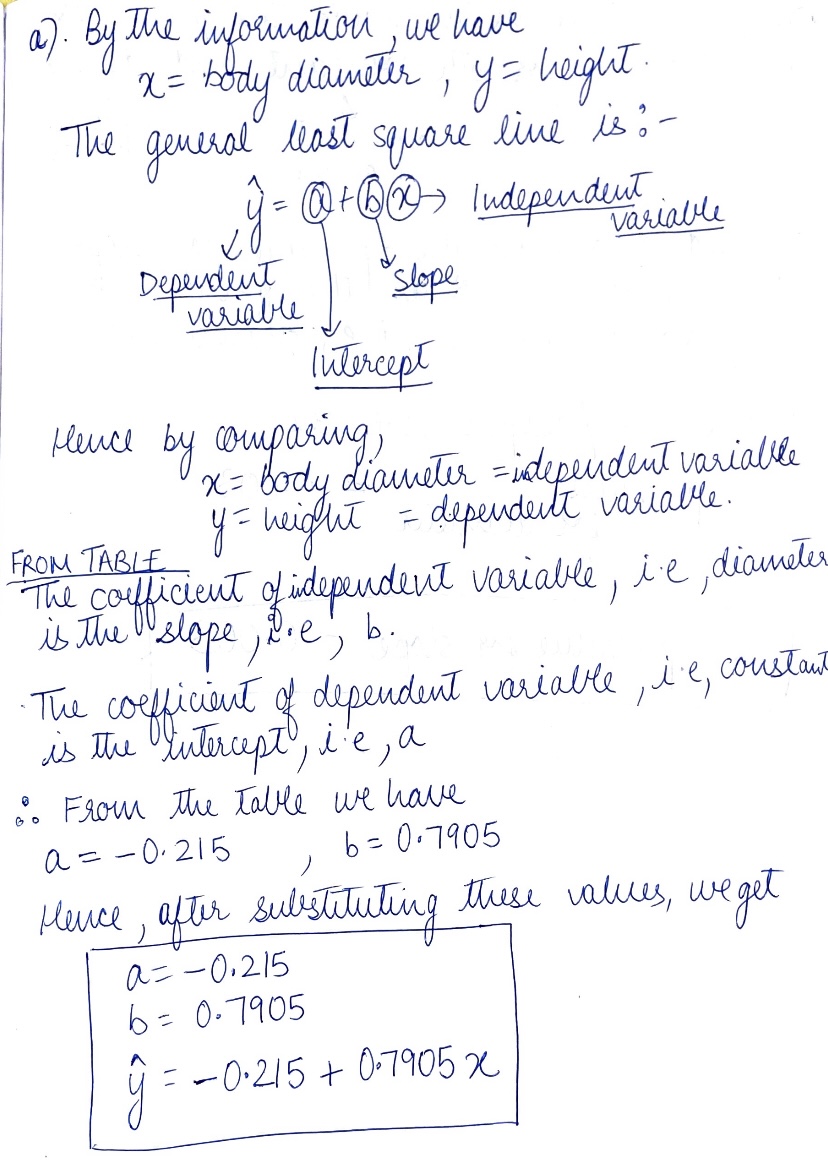 a). By the information, we have
x = body diameter, y = height.
The general least square line is :-
ŷ = a + b x → Independent variable
Dependent variable
Slope
Intercept
Hence by comparing,
x = body diameter = idependent variable
y = height = dependent variable.
FROM TABLE
The coefficient of idependent variable, i.e, diameter
is the slope, i.e, b.
The coefficient of dependent variable, i.e, constant
is the intercept, i.e, a
∴ From the table we have
a = -0.215 , b = 0.7905
Hence, after substituting these values, we get
a = -0.215
b = 0.7905
ŷ = -0.215 + 0.7905 x